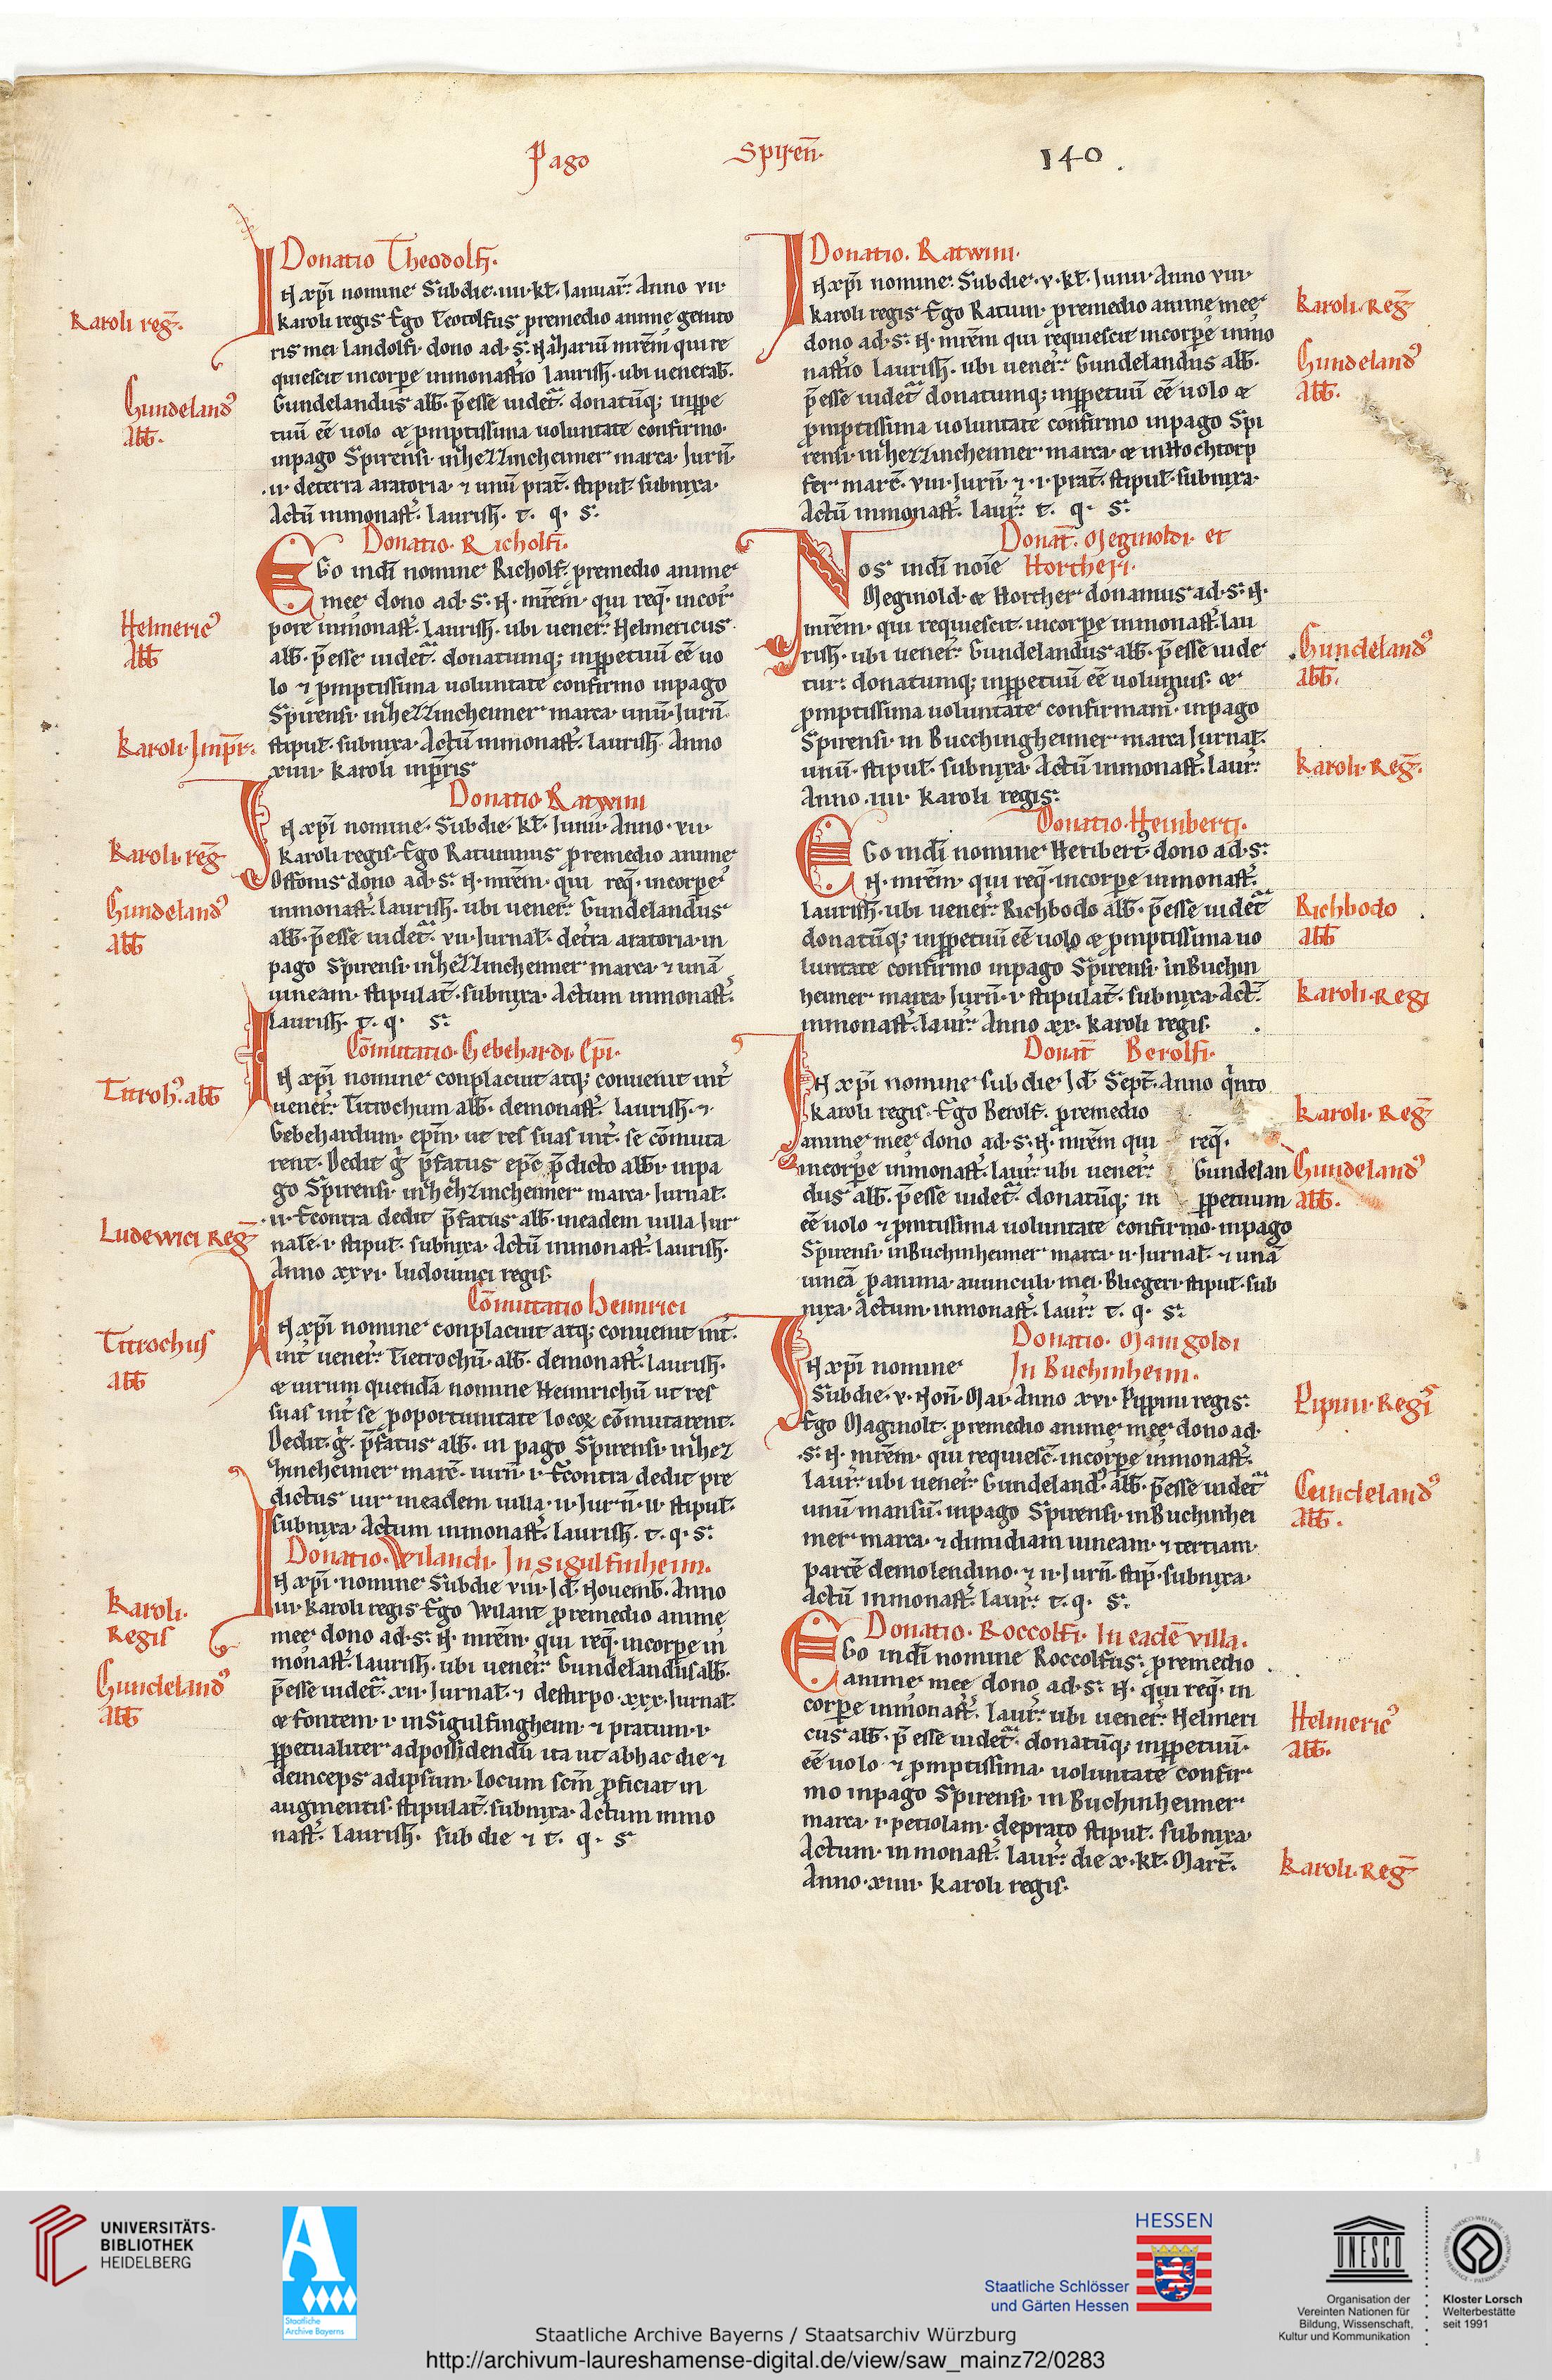 Pago Spiren̄.
140.
Donatio Theodolfi.
IN xp̄i nomine Sub die .iiii. kł. Januar̄. Anno vii.
karoli regis Ego Teotolfus p̱remedio anime genito
ris mei Landolfi. dono ad. s. Nazhariū mr̄em qui re
quiescit incorp̱e inmonasťio Laurish̄. ubi uenerab̄.
Gundelandus abb̄. p̄esse uidet̄. donatūq; inp̱pe
tuū eē uolo & p̱mptissima uoluntate confirmo.
inpago Spirensi. inhezzincheimer marca Jurn̄.
.ii. deterra aratoria. ⁊ unū prat̄. stipuł subnixa.
Actū inmonasť. Laurish̄. t. q. s.
Karoli reḡ.
Gundeland⁹
Abb̄.
Donatio. Richolfi.
EGo indī nomine Richolf. p̱remedio anime
mee dono ad. s. N. mr̄em qui req̄. incor
pore inmonasť. Laurish̄. ubi uener̄. Helmericus
abb̄. p̄esse uidet̄. donatumq; inp̱petuū eē uo
lo ⁊ p̱mptissima uoluntate confirmo inpago
Spirensi inhezzincheimer marca unū Jurn̄.
stipuł. subnixa. Actū inmonasť. Laurish̄. Anno
xiiii. karoli inp̄ris
Helmeric⁹
Abb̄
Karoli Jmp̄r.
Donatio Ratwini
IN xp̄i nomine. Sub die. kł. Junii. Anno. vii.
karoli regis. Ego Ratuuinus p̱remedio anime
Offonis dono ad. s. N. mr̄em. qui req̄. incorp̱e
inmonasť. Laurish̄. ubi uener̄. Gundelandus
abb̄. p̄esse uidet̄. vii. Jurnał. det̄ra aratoria. in
pago Spirensi. inhezzincheimer marca ⁊ unā
uineam. stipulat̄. subnixa. Actum inmonasť.
Laurish̄. t. q. s.
Karoli. reḡ
Gundeland⁹
Abb̄
Cōmutatio. Gebehardi. Ep̄i.
IN xp̄i nomine conplacuit atq; conuenit int̄
uener̄. Titrochum abb̄. demonasť. Laurish̄. ⁊
Gebehardum. ep̄m. ut res suas int̄. se cōmuta
rent. Dedit g̊ p̄fatus ep̄c p̄dicto abb̄i. inpa
go Spirensi. inhezzincheimer marca. Jurnał.
.ii. Econtra dedit p̄fatus abb̄. ineadem uilla Jur
nałe. i. stipuł. subnixa. Actū inmonasť. Laurish̄.
Anno xxvi. Ludouuici regis.
Titroh⁹. abb̄
Ludewici Reḡ
Cōmutatio Heinrici
IN xp̄i nomine conplacuit atq; conuenit int̄.
int̄ uener̄. Tietrochū. abb̄. demonasť. Laurish̄.
& uirum quendā nomine Heinrichū ut res
suas int̄ se p̱oportunitate locoꝝ cōmutarent.
Dedit. g̊. p̄fatus abb̄. in pago Spirensi. inhez
hincheimer marc̄. iurn̄. i. Econtra dedit pre
dictus uir ineadem uilla. ii. Jurn̄. ii. stipuł.
subnixa. Actum inmonasť. Laurish̄. t. q. s.
Titrochus
abb̄
Donatio. Wilandi. In Sigulfinheim.
IN xp̄i. nomine Sub die viii. Jd̄. Nouemb̄. Anno
iii. karoli regis Ego Wilant p̱remedio anime
mee dono ad. s. N. mr̄em. qui req̄. incorp̱e in
monasť. Laurish̄. ubi uener̄. Gundelandus abb̄.
p̄esse uidet̄. xii. Jurnał. ⁊ destirpo. xxx. Jurnał.
& fontem. i. inSigulfingheim. ⁊ pratum. i.
p̱petualiter adpossidendū ita ut abhac die ⁊
deinceps adipsum. locum sc̄m p̱ficiat in
augmentis. stipulat̄. subnixa. Actum inmo
nasť. Laurish̄. sub die ⁊ t. q. s
Karoli.
Regis
Gundeland⁹
Abb̄
Donatio. Ratwini.
IN xp̄i nomine. Sub die. v. kł. Junii. Anno viii.
karoli regis Ego Ratuin. p̱remedio anime mee
dono ad. s. N. mr̄em qui requiescit incorp̱e inmo
nasťio Laurish̄. ubi uener̄. Gundelandus abb̄.
p̄esse uidet̄ donatumq; inp̱petuū eē uolo &
p̱mptissima uoluntate confirmo inpago Spi
rensi. inhezzincheimer marca. & inHochtorp
fer marc̄. viii. Jurn̄. ⁊ .i. prat̄. stipuł. subnixa.
Actū inmonasť. Laur̄. t. q. s.
Karoli. Reḡ
Gundeland⁹
abb̄.
Donat̄. Meginoldi. et
Hortheri.
Nos indī noīe
Meginold. & Horther donamus ad. s. N.
mr̄em. qui requiescit. incorp̱e inmonasť. Lau
rish̄. ubi uener̄. Gundelandus abb̄. p̄esse uide
tur. donatumq; inp̱petuū eē uolumus. &
p̱mptissima uoluntate confirmam̄. inpago
Spirensi in Bucchingheimer marca Jurnał.
unū. stipuł. subnixa. Actū inmonasť. Laur̄.
Anno. iiii. karoli regis.
Gundeland⁹
abb̄.
Karoli. Reḡ.
Donatio. Heriberti.
EGo indī nomine Heribert⁹ dono ad. s.
N. mr̄em. qui req̄. incorp̱e inmonasť.
Laurish̄. ubi uener̄. Richbodo abb̄. p̄esse uidet̄
donatūq; inp̱petuū eē uolo & p̱mptissima uo
luntate confirmo inpago Spirensi. inBuchin
heimer marca. Jurn̄. v. stipulat̄. subnixa. Act̄.
inmonasť. Laur̄. Anno xx. karoli regis.
Richbodo
abb̄
Karoli. Regi
Donat̄ Berolfi.
IN xp̄i nomine sub die Jd̄. Sept̄. Anno q̊nto
karoli regis. Ego Berolf. p̱remedio
anime mee dono ad. s. N. mr̄em qui req̄.
incorp̱e inmonasť. Laur̄. ubi uener̄. Gundelan
dus abb̄. p̄esse uidet̄. donatūq; in p̱petuum
eē uolo ⁊ p̱mtissima uoluntate confirmo. inpago
Spirensi. inBuchinheimer marca. ii. Jurnał. ⁊ unā
uineā p̱anima. auunculi. mei. Bliegeri. stipuł. sub
nixa. Actum. inmonasť. Laur̄. t. q. s.
Karoli. Reḡ
Gundeland⁹
abb̄.
Donatio. Manigoldi
In Buchinheim.
IN xp̄i nomine
Sub die. v. Non̄. Mai. Anno xvi. Pippini regis.
Ego Maginolt. p̱remedio anime mee dono ad.
.s. N. mr̄em. qui requiesc̄. incorp̱e inmonasť.
Laur̄. ubi uener̄. Gundeland⁹. abb̄. p̄esse uidet̄
unū mansū. inpago Spirensi. inBuchinhei
mer marca. ⁊ dimidiam uineam. ⁊ tertiam.
partē demolendino. ⁊ ii. Jurn̄. stip̄. subnixa.
Actū inmonasť. Laur̄. t. q. s.
Pipini. Regis
Gundeland⁹
abb̄.
Donatio. Roccolfi. In eadē villa.
EGo indī nomine Roccolfus. p̱remedio
anime mee dono ad. s. N. qui req̄. in
corp̱e inmonasť. Laur̄. ubi uener̄. Helmeri
cus abb̄. p̄ esse uidet̄. donatūq; inp̱petuū.
eē uolo ⁊ p̱mptissima. uoluntate confir
mo inpago Spirensi. in Buchinheimer
marca. i. petiolam. deprato stipuł. subnixa
Actum. in monasť. Laur̄. die x. kł. Mart̄.
Anno. xiiii. karoli regis.
Helmeric⁹
abb̄.
Karoli. Reḡ
UNIVERSITÄTS-
BIBLIOTHEK
HEIDELBERG
Staatliche
Archive Bayerns
HESSEN
Staatliche Schlösser
und Gärten Hessen
UNESCO
Organisation der
Vereinten Nationen für
Bildung, Wissenschaft,
Kultur und Kommunikation
Kloster Lorsch
Welterbestätte
seit 1991
Staatliche Archive Bayerns / Staatsarchiv Würzburg
http://archivum-laureshamense-digital.de/view/saw_mainz72/0283